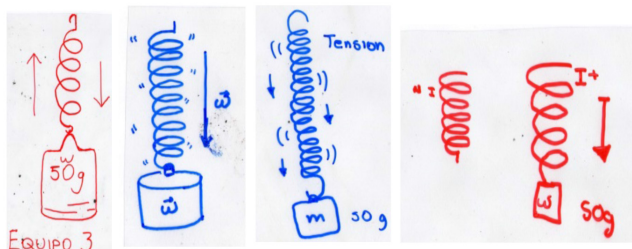 w
50g
EQUIPO 3
w
w
Tension
m 50 g
I+
w
50g